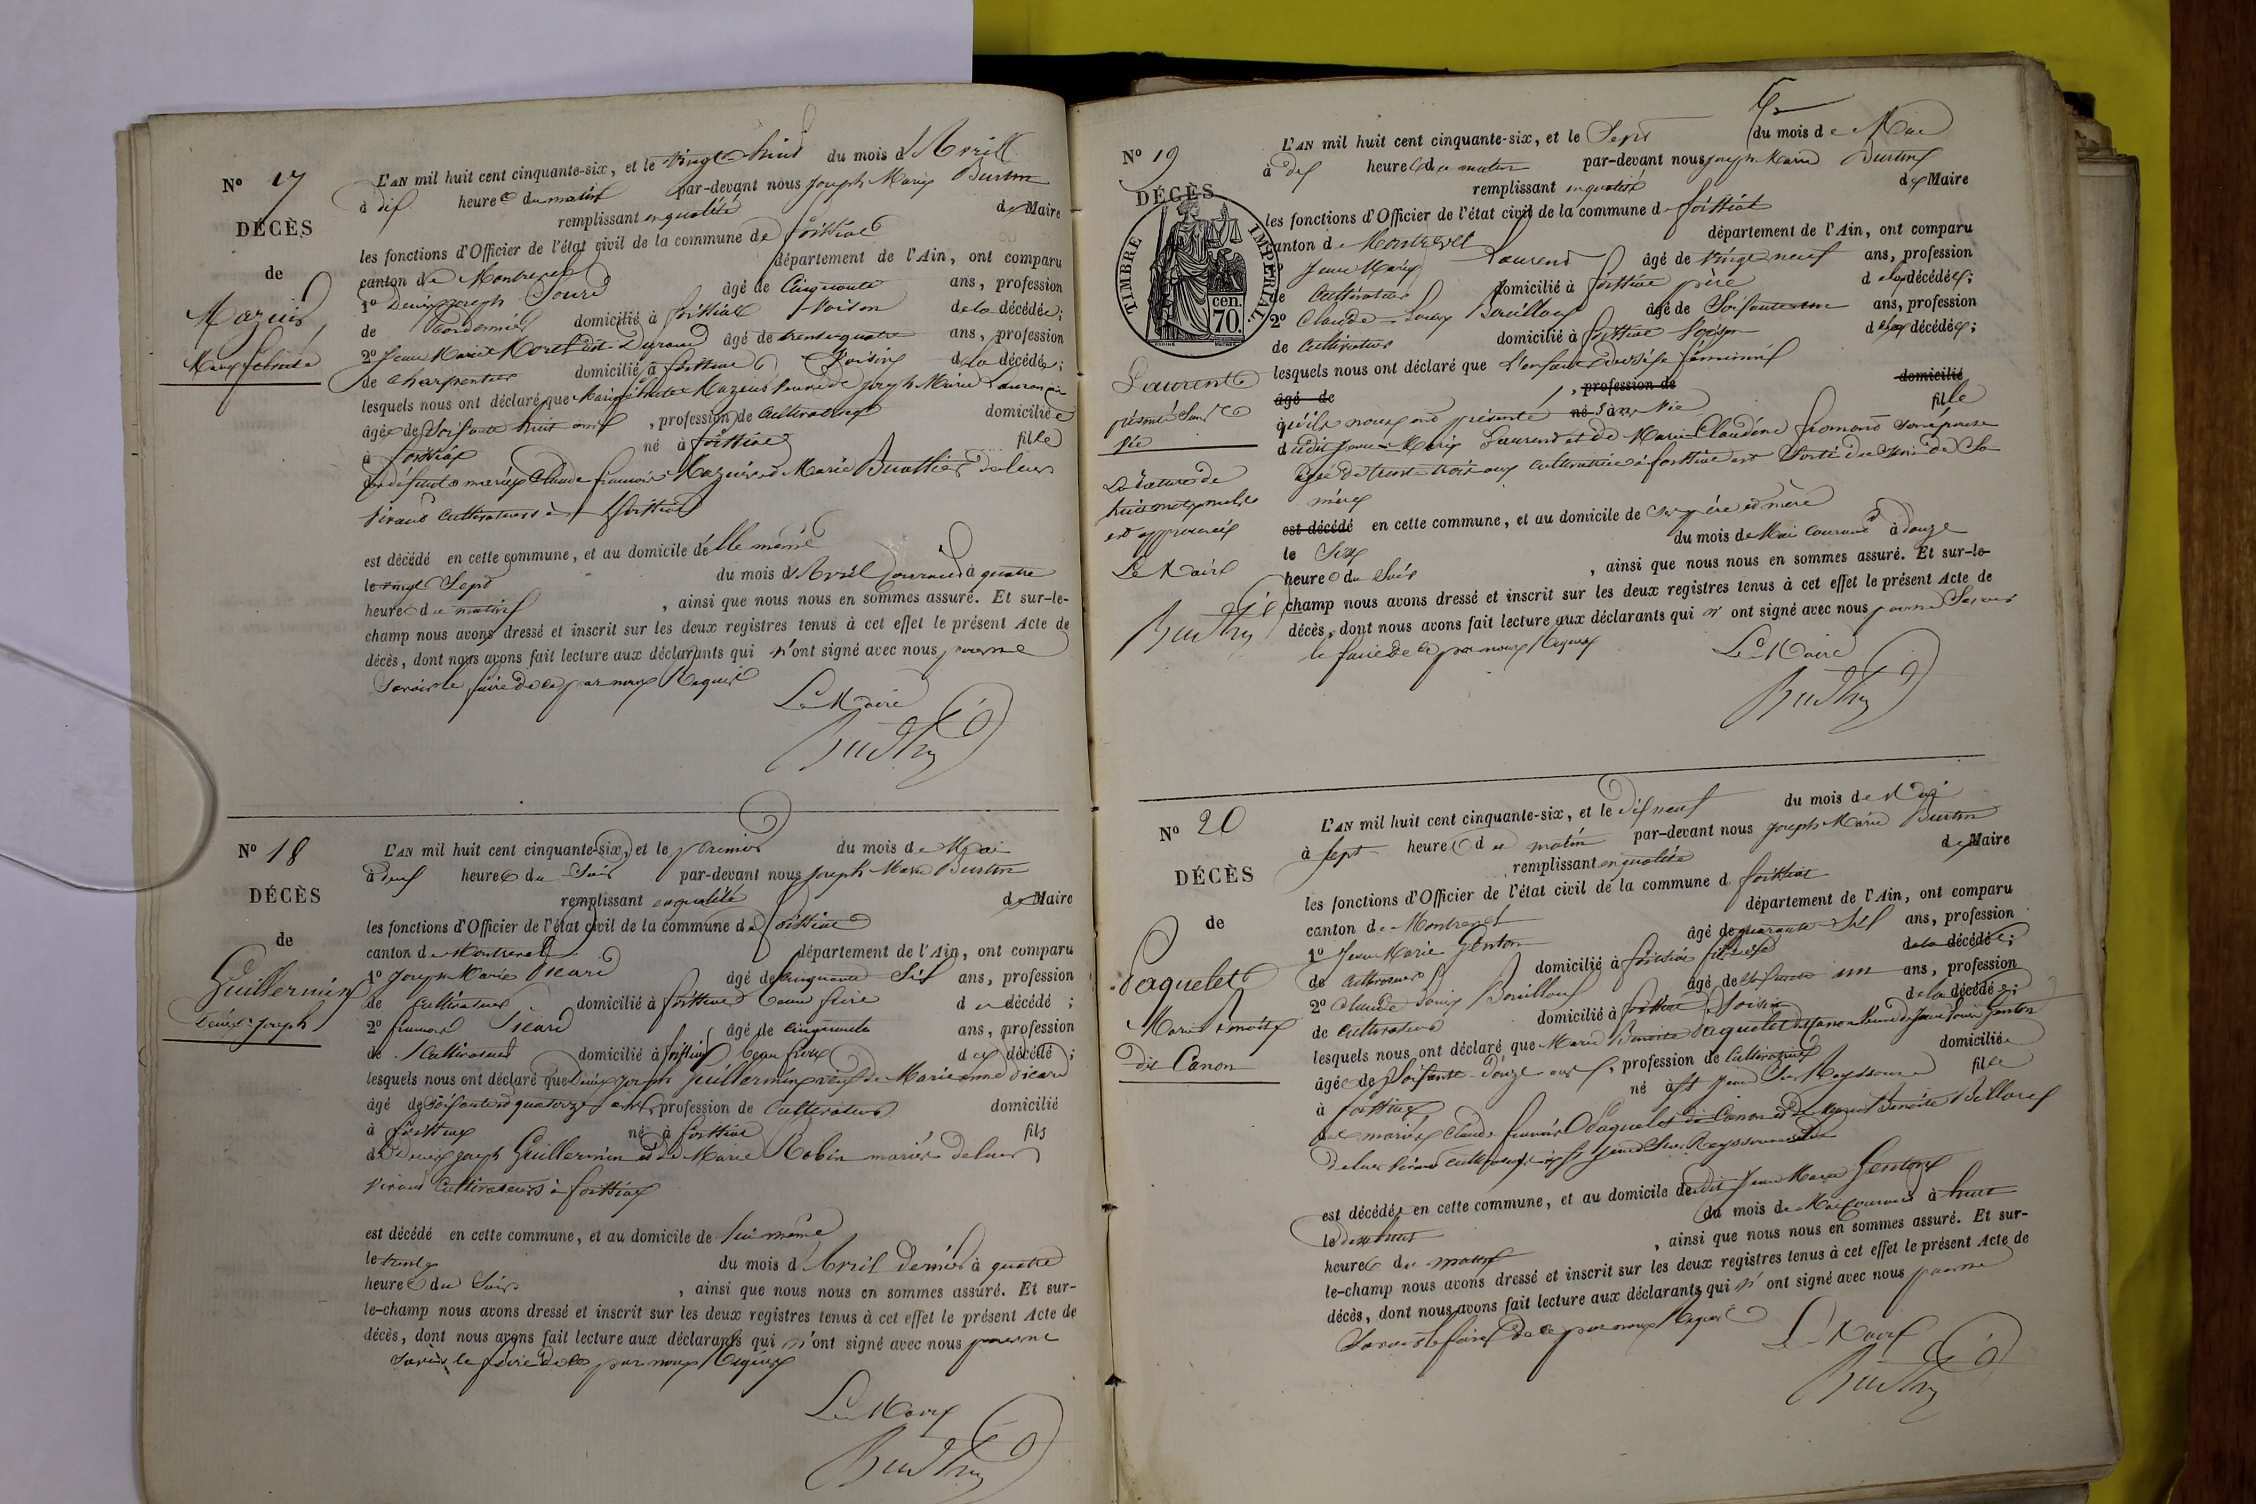 N° 17
DÉCÈS
de
Mazuir
L'AN mil huit cent cinquante-six, et le vingt huit du mois d'Avril
à dix heures du matin par-devant nous Joseph Marie Buathier
remplissant en qualité de Maire
les fonctions d'Officier de l'état civil de la commune de foissiat
canton de Montrevel département de l'Ain, ont comparu
1° Denis Joseph âgé de Cinquante ans, profession
de Cordonnier domicilié à foissiat Voisin de la décédée;
2° Jean Marie Morel dit Durand âgé de trente quatre ans, profession
de charpentier domicilié à foissiat Voisin de la décédée;
lesquels nous ont déclaré que Marie Mazuir Veuve de Joseph Marie
âgée de Soixante huit ans, profession de Cultivatrice domiciliée
à foissiat né à foissiat fille
de défunts mariés Claude françois Mazuir et Marie Buathier de leur
vivant Cultivateurs à foissiat
est décédé en cette commune, et au domicile d'elle même
le vingt Sept du mois d'Avril Courant à quatre
heures du matin, ainsi que nous nous en sommes assuré. Et sur-le-
champ nous avons dressé et inscrit sur les deux registres tenus à cet effet le présent Acte de
décès, dont nous avons fait lecture aux déclarants qui n'ont signé avec nous pour ne
Savoir le faire de ce par nous Requis
Le Maire
N° 18
DÉCÈS
de
Guillermin
Denis Joseph
L'AN mil huit cent cinquante-six, et le premier du mois de Mai
à deux heures du Soir par-devant nous Joseph Marie Buathier
remplissant en qualité de Maire
les fonctions d'Officier de l'état civil de la commune de foissiat
canton de Montrevel département de l'Ain, ont comparu
1° Joseph Marie Sicard âgé de cinquante Six ans, profession
de Cultivateur domicilié à foissiat beau frère du décédé;
2° françois Sicard âgé de cinquante ans, profession
de Cultivateur domicilié à foissiat beau frère du décédé;
lesquels nous ont déclaré que Denis Joseph Guillermin veuf de Marie anne Sicard
âgé de Soixante et quatorze ans, profession de Cultivateur domicilié
à foissiat né à foissiat fils
de Denis Joseph Guillermin et de Marie Robin mariés de leur
vivant Cultivateurs à foissiat
est décédé en cette commune, et au domicile de lui même
le trente du mois d'Avril dernier à quatre
heures du Soir, ainsi que nous nous en sommes assuré. Et sur-
le-champ nous avons dressé et inscrit sur les deux registres tenus à cet effet le présent Acte de
décès, dont nous avons fait lecture aux déclarants qui n'ont signé avec nous pour ne
Savoir le faire de ce par nous Requis
Le Maire
N° 19
DÉCÈS
TIMBRE IMPÉRIAL
70 cen.
Laurent
présenté Sans
vie
La rature de
huit mots nuls
est approuvée
Le Maire
L'AN mil huit cent cinquante-six, et le Sept du mois de Mai
à dix heures du matin par-devant nous Joseph Marie Buathier
remplissant en qualité de Maire
les fonctions d'Officier de l'état civil de la commune de foissiat
canton de Montrevel département de l'Ain, ont comparu
1° Jean Marie Laurent âgé de vingt neuf ans, profession
de Cultivateur domicilié à foissiat père de la décédée;
2° Claude Louis Bouilloux âgé de Soixante un ans, profession
de Cultivateur domicilié à foissiat Voisin de la décédée;
lesquels nous ont déclaré que l'enfant du Sexe féminin
âgé de, profession de domicilié
qu'ils nous ont présenté né Sans Vie fille
dudit Jean Marie Laurent et de Marie Claudine fromond Son épouse
âgée de trente trois ans Cultivatrice à foissiat est Sorti du Sein de Sa
mère
est décédé en cette commune, et au domicile de Ses père et mère
le Six du mois de Mai Courant à douze
heures du Soir, ainsi que nous nous en sommes assuré. Et sur-le-
champ nous avons dressé et inscrit sur les deux registres tenus à cet effet le présent Acte de
décès, dont nous avons fait lecture aux déclarants qui n'ont signé avec nous pour ne Savoir
le faire de ce par nous Requis
Le Maire
N° 20
DÉCÈS
de
Paquelet
Marie Benoite
dit Canon
L'AN mil huit cent cinquante-six, et le dix neuf du mois de Mai
à Sept heures du matin par-devant nous Joseph Marie Buathier
remplissant en qualité de Maire
les fonctions d'Officier de l'état civil de la commune de foissiat
canton de Montrevel département de l'Ain, ont comparu
1° Jean Marie Genton âgé de quarante Six ans, profession
de Cultivateur domicilié à foissiat de la décédée;
2° Claude Louis Bouilloux âgé de Soixante un ans, profession
de Cultivateur domicilié à foissiat Voisin de la décédée;
lesquels nous ont déclaré que Marie Benoite Paquelet dit Canon Veuve de Genton
âgée de Soixante Douze ans, profession de Cultivatrice domiciliée
à foissiat né à St Jean Sur Reyssouze fille
de mariés Claude françois Paquelet dit Canon et de Marie Benoite
de leur vivant Cultivateurs à St Jean Sur Reyssouze
est décédée en cette commune, et au domicile dudit Jean Marie Genton
le dix huit du mois de Mai courant à huit
heures du matin, ainsi que nous nous en sommes assuré. Et sur-
le-champ nous avons dressé et inscrit sur les deux registres tenus à cet effet le présent Acte de
décès, dont nous avons fait lecture aux déclarants qui n'ont signé avec nous pour ne
Savoir le faire de ce par nous Requis
Le Maire